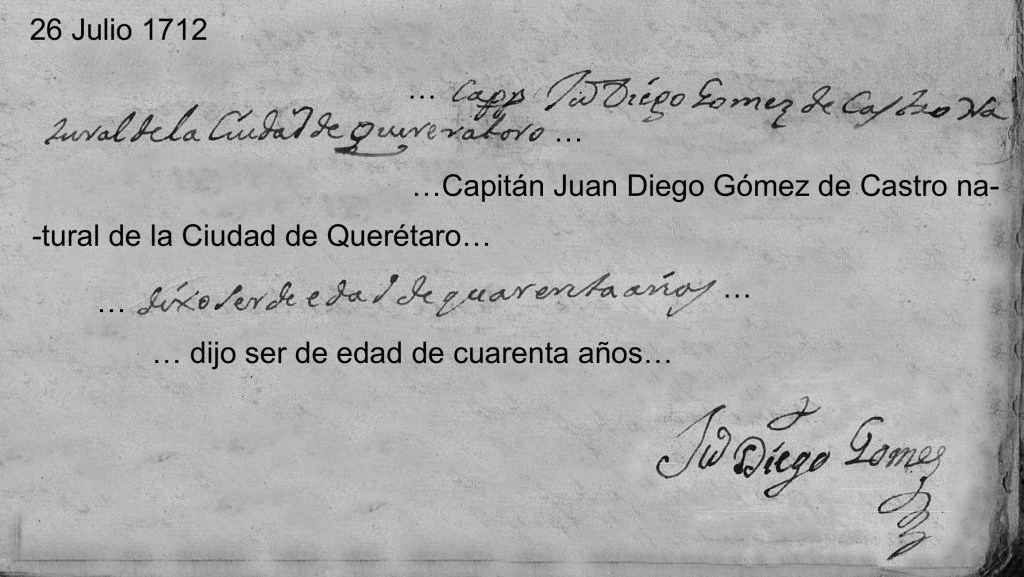 26 Julio 1712
... Capp Ju Diego Gomez de Castro Na
tural de la Ciudad de Queretaro ...
…Capitán Juan Diego Gómez de Castro na-
-tural de la Ciudad de Querétaro…
... dixo ser de edad de quarenta años ...
… dijo ser de edad de cuarenta años…
Ju Diego Gomez